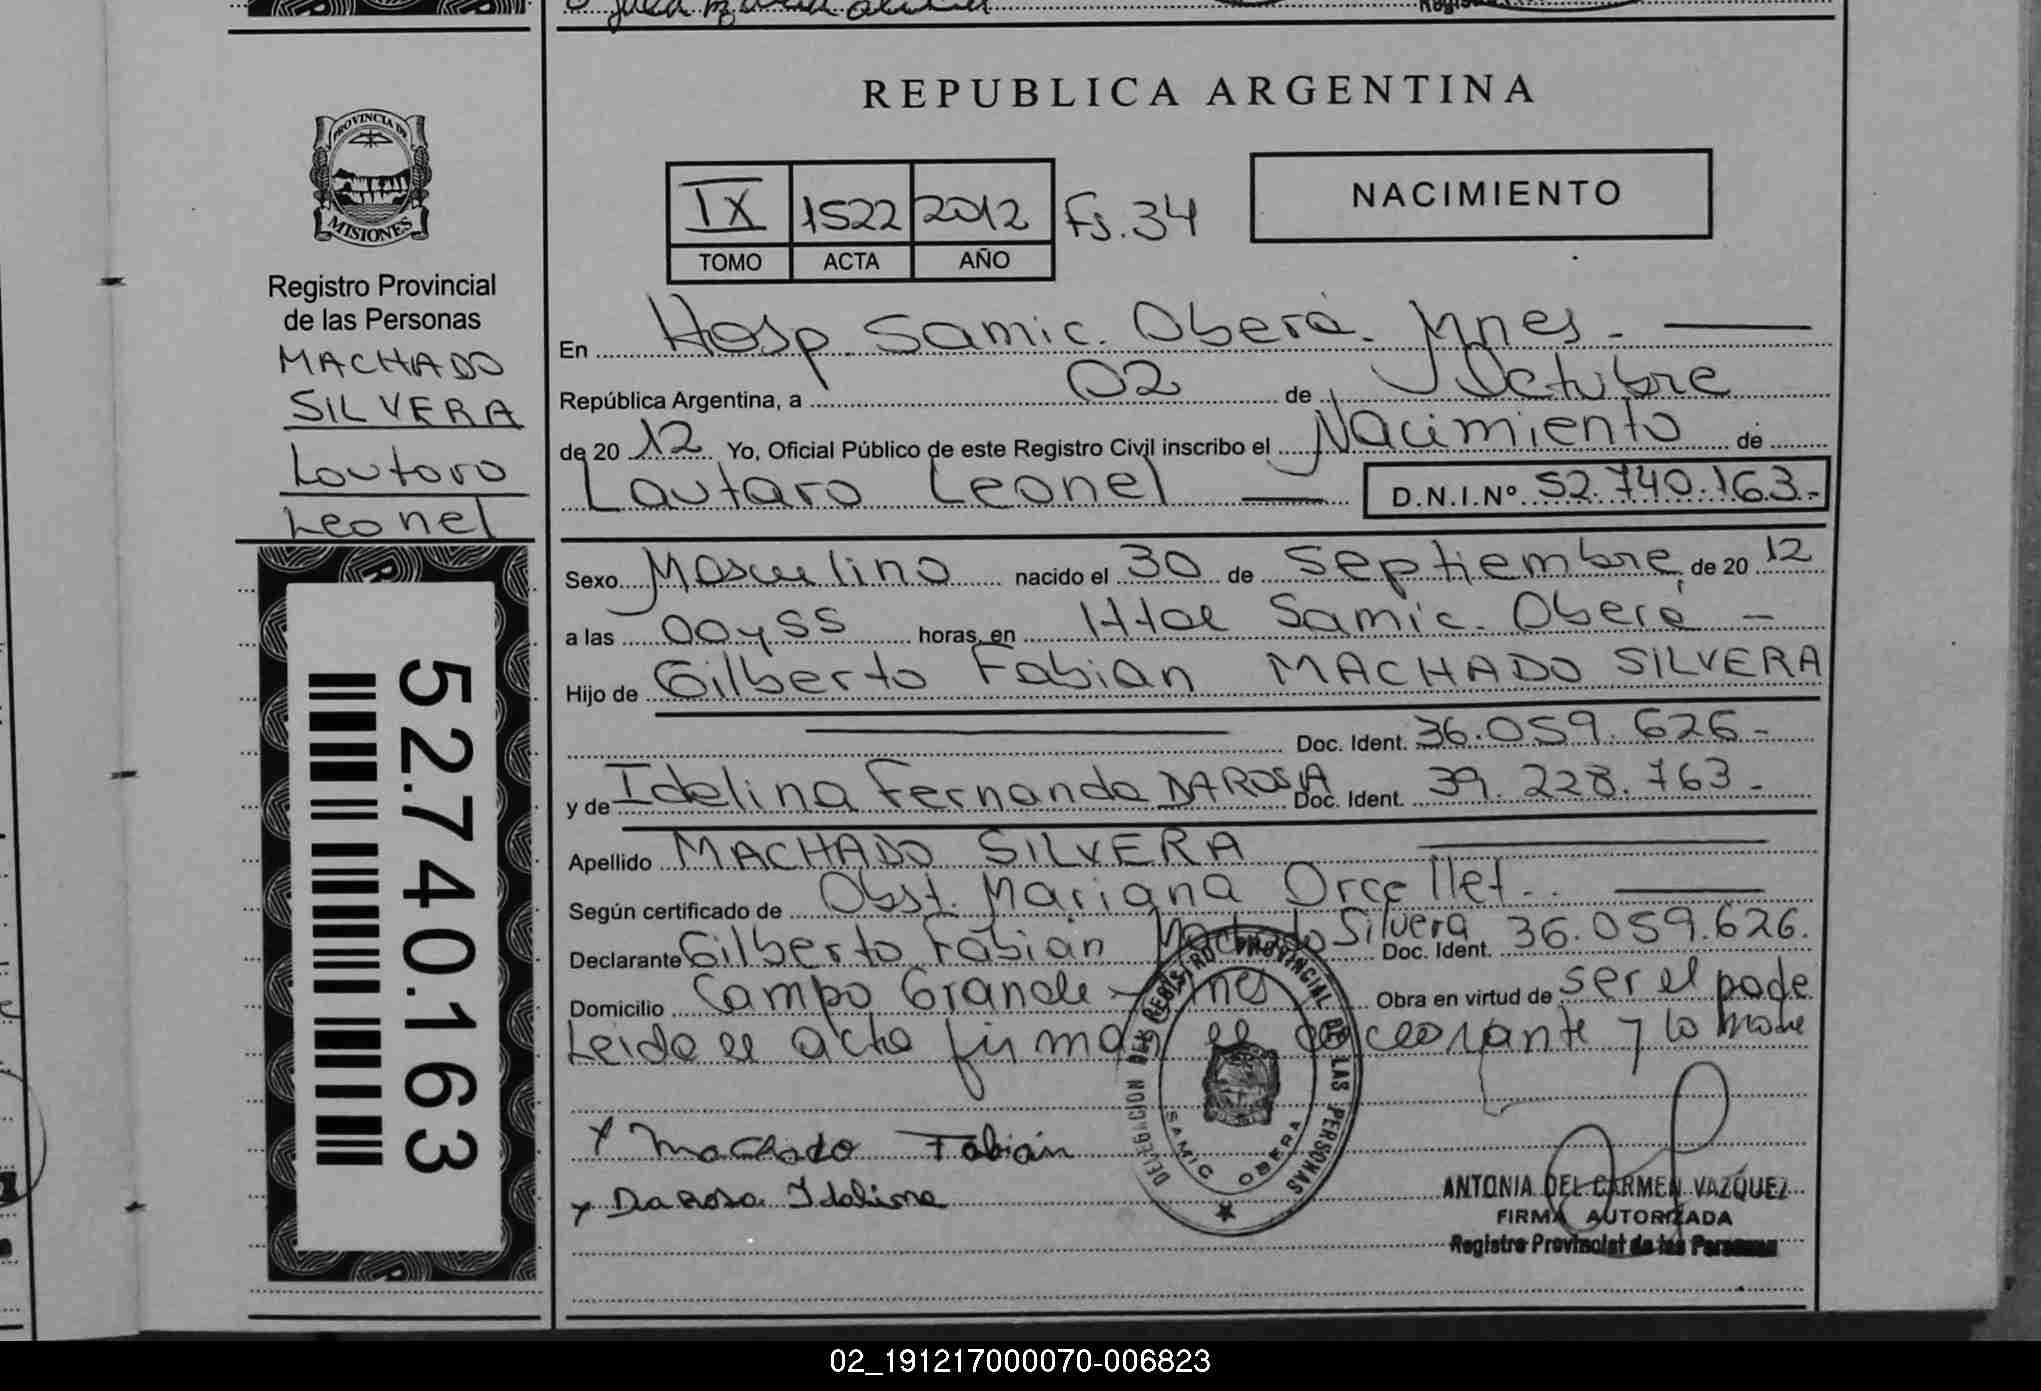 REPUBLICA ARGENTINA
PROVINCIA DE
MISIONES
Registro Provincial
de las Personas
MACHADO
SILVERA
Lautaro
Leonel
52.740.163
IX 1522 2012 Fs. 34
TOMO ACTA AÑO
NACIMIENTO
En Hosp Samic. Oberá. Mnes. -
República Argentina, a 02 de Octubre
de 20 12 Yo, Oficial Público de este Registro Civil inscribo el Nacimiento de
Lautaro Leonel — D.N.I.Nº 52.740.163.-
Sexo Masculino nacido el 30 de Septiembre de 20 12
a las 00 y 55 horas, en Htal Samic. Oberá -
Hijo de Gilberto Fabian MACHADO SILVERA
Doc. Ident. 36.059.626-
y de Idelina Fernanda DA ROSA Doc. Ident. 39.228.763-
Apellido MACHADO SILVERA
Según certificado de Obst. Mariana Orcellet.
Declarante Gilberto Fabian Machado Silvera Doc. Ident. 36.059.626.
Domicilio Campo Grande - Mnes Obra en virtud de ser el padre
Leida el acta firman el declarante y la madre
x Machado Fabián
x Da Rosa Idelina
DELEGACION DEL REGISTRO PROVINCIAL DE LAS PERSONAS
SAMIC OBERA
ANTONIA DEL CARMEN VAZQUEZ
FIRMA AUTORIZADA
Registro Provincial de las Personas
02_191217000070-006823